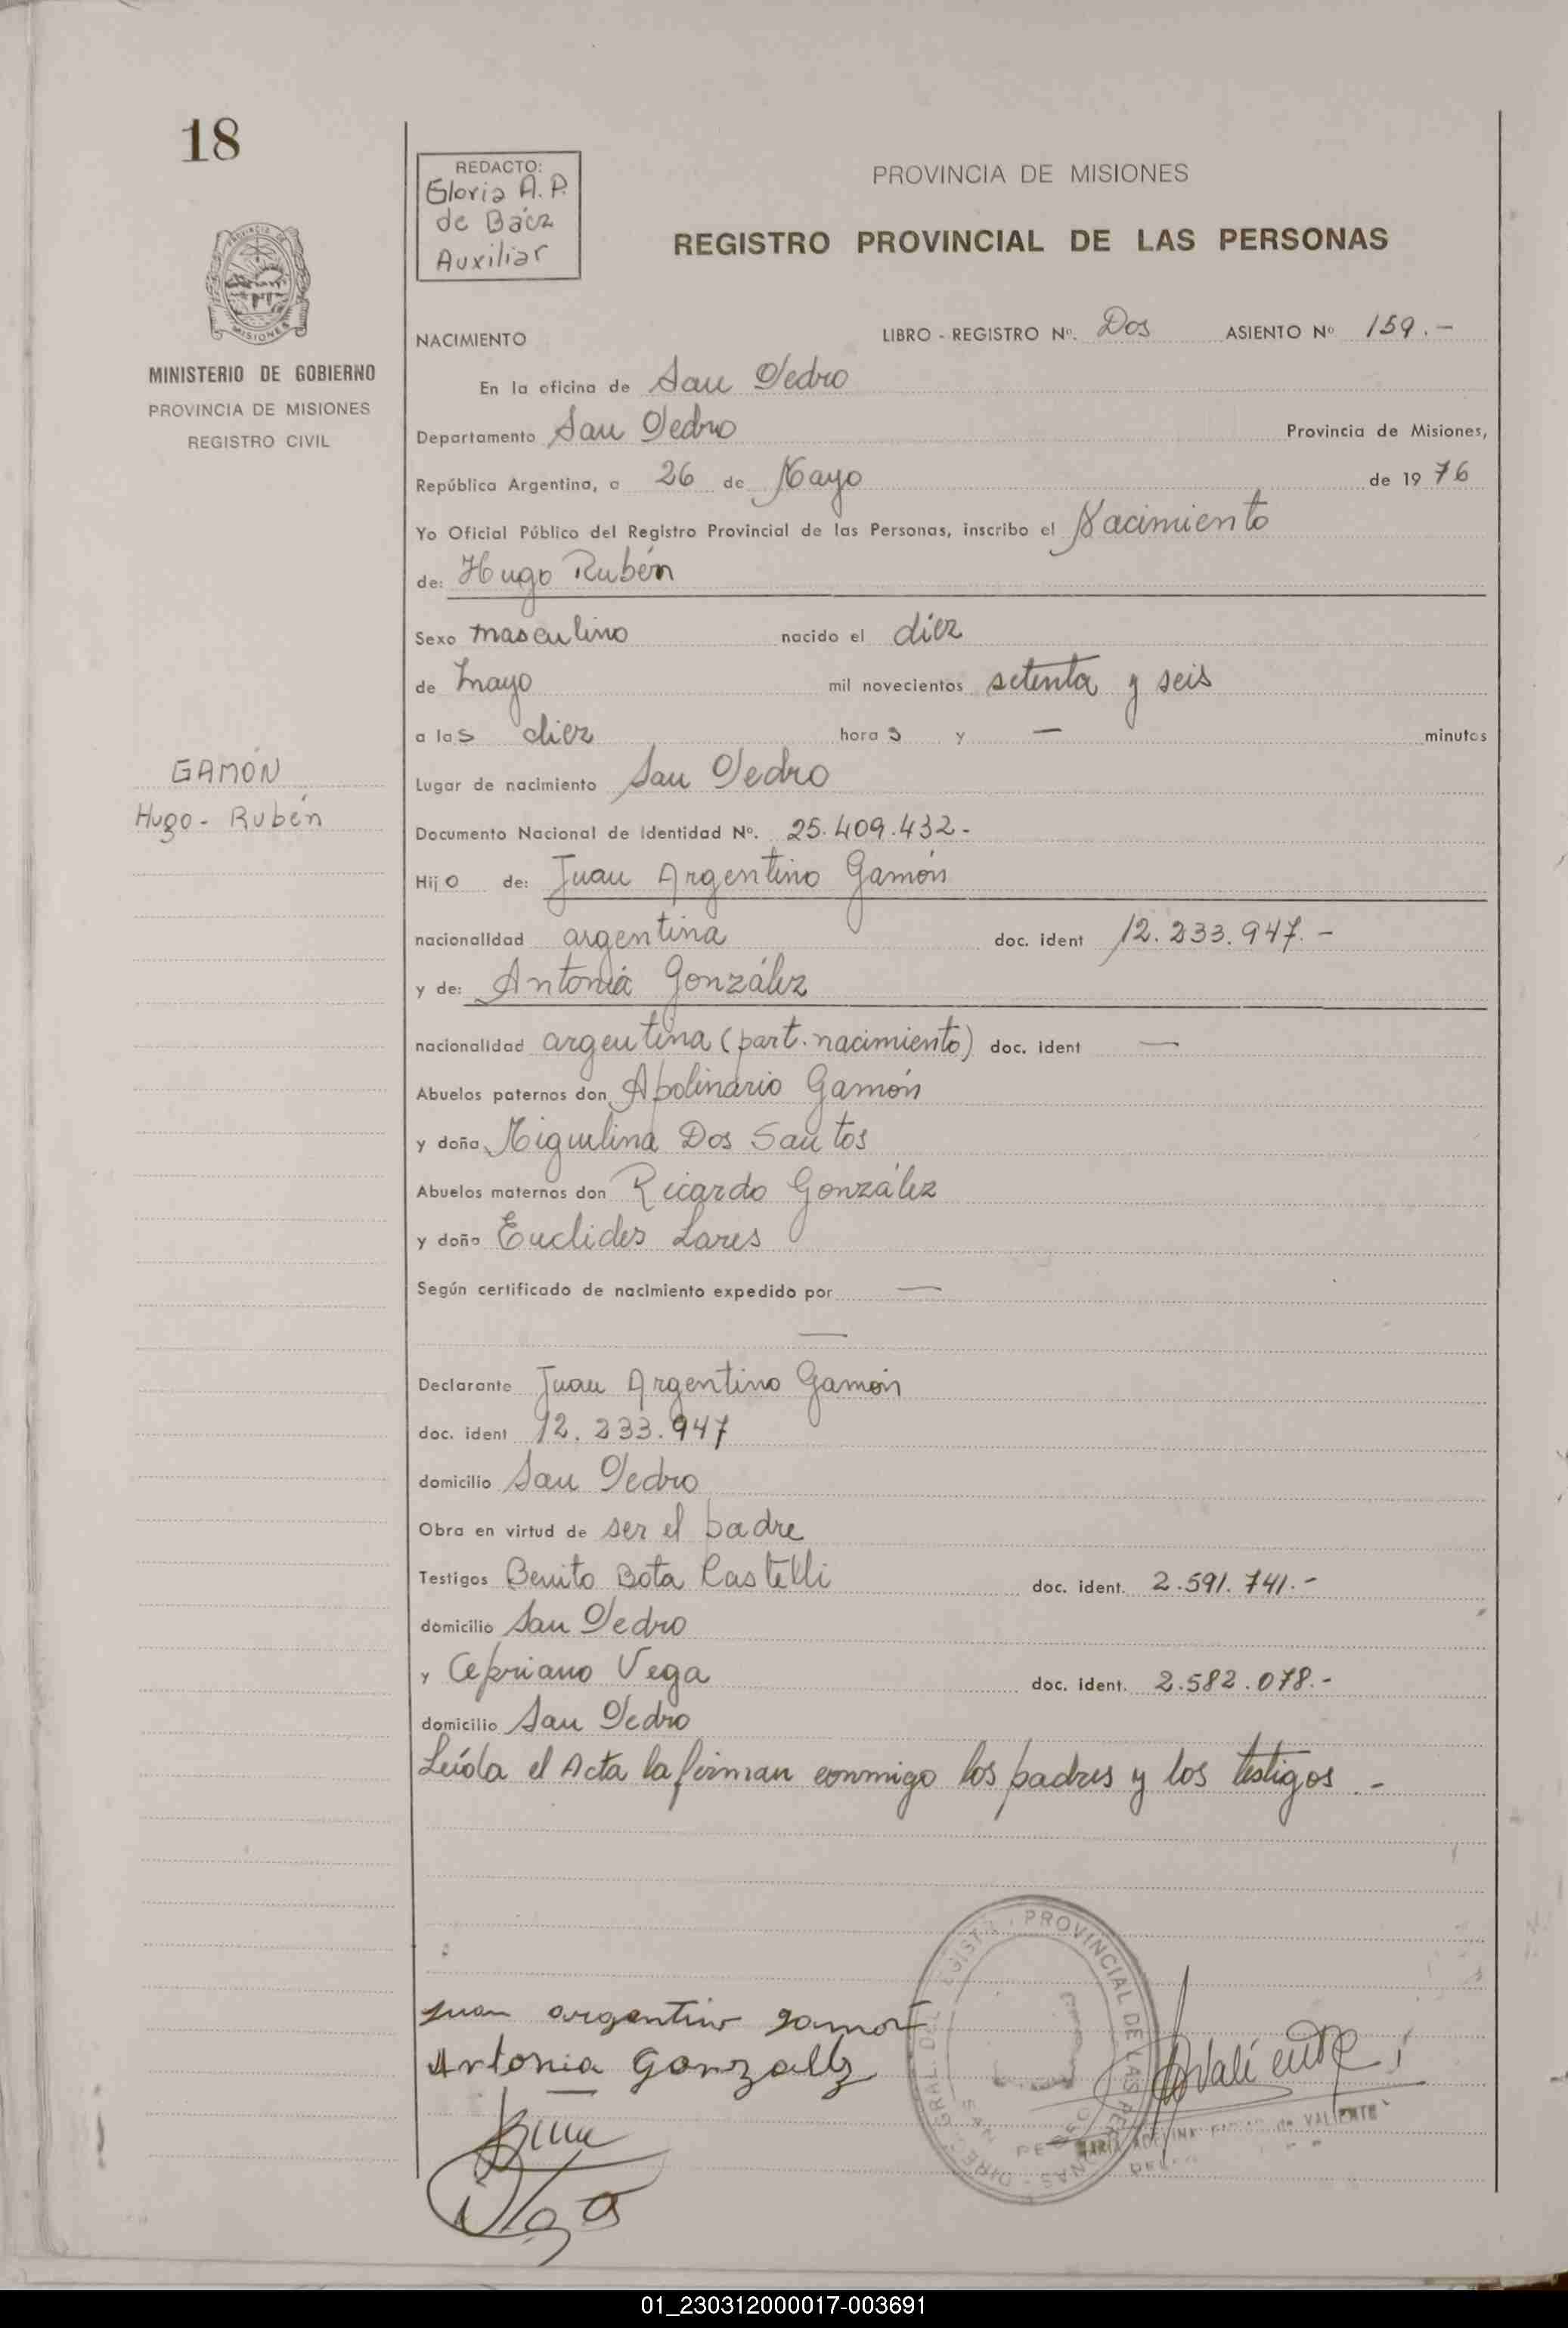 18
REDACTO:
Gloria A. P.
de Báez
Auxiliar
PROVINCIA DE MISIONES
REGISTRO PROVINCIAL DE LAS PERSONAS
MISIONES
MINISTERIO DE GOBIERNO
PROVINCIA DE MISIONES
REGISTRO CIVIL
NACIMIENTO LIBRO - REGISTRO Nº. Dos ASIENTO Nº 159.-
En la oficina de San Pedro
Departamento San Pedro Provincia de Misiones,
República Argentina, a 26 de Mayo de 1976
Yo Oficial Público del Registro Provincial de las Personas, inscribo el Nacimiento
de: Hugo Rubén
Sexo masculino nacido el diez
de mayo mil novecientos setenta y seis
a las diez horas y — minutos
GAMÓN
Hugo - Rubén
Lugar de nacimiento San Pedro
Documento Nacional de Identidad Nº. 25.409.432-
Hijo de: Juan Argentino Gamón
nacionalidad argentina doc. ident 12.233.947.-
y de: Antonia González
nacionalidad argentina (part. nacimiento) doc. ident —
Abuelos paternos don Apolinario Gamón
y doña Miguelina Dos Santos
Abuelos maternos don Ricardo González
y doña Euclides Lares
Según certificado de nacimiento expedido por —
—
Declarante Juan Argentino Gamón
doc. ident 12.233.947
domicilio San Pedro
Obra en virtud de ser el padre
Testigos Benito Bota Castelli doc. ident. 2.591.741.-
domicilio San Pedro
y Cepriano Vega doc. ident. 2.582.078.-
domicilio San Pedro
Leída el Acta la firman conmigo los padres y los testigos.-
Juan argentino gamon
Antonia Gonzalez
PROVINCIAL DE LAS PERSONAS
SAN PEDRO
MARIA ADELINA de VALIENTE
01_230312000017-003691